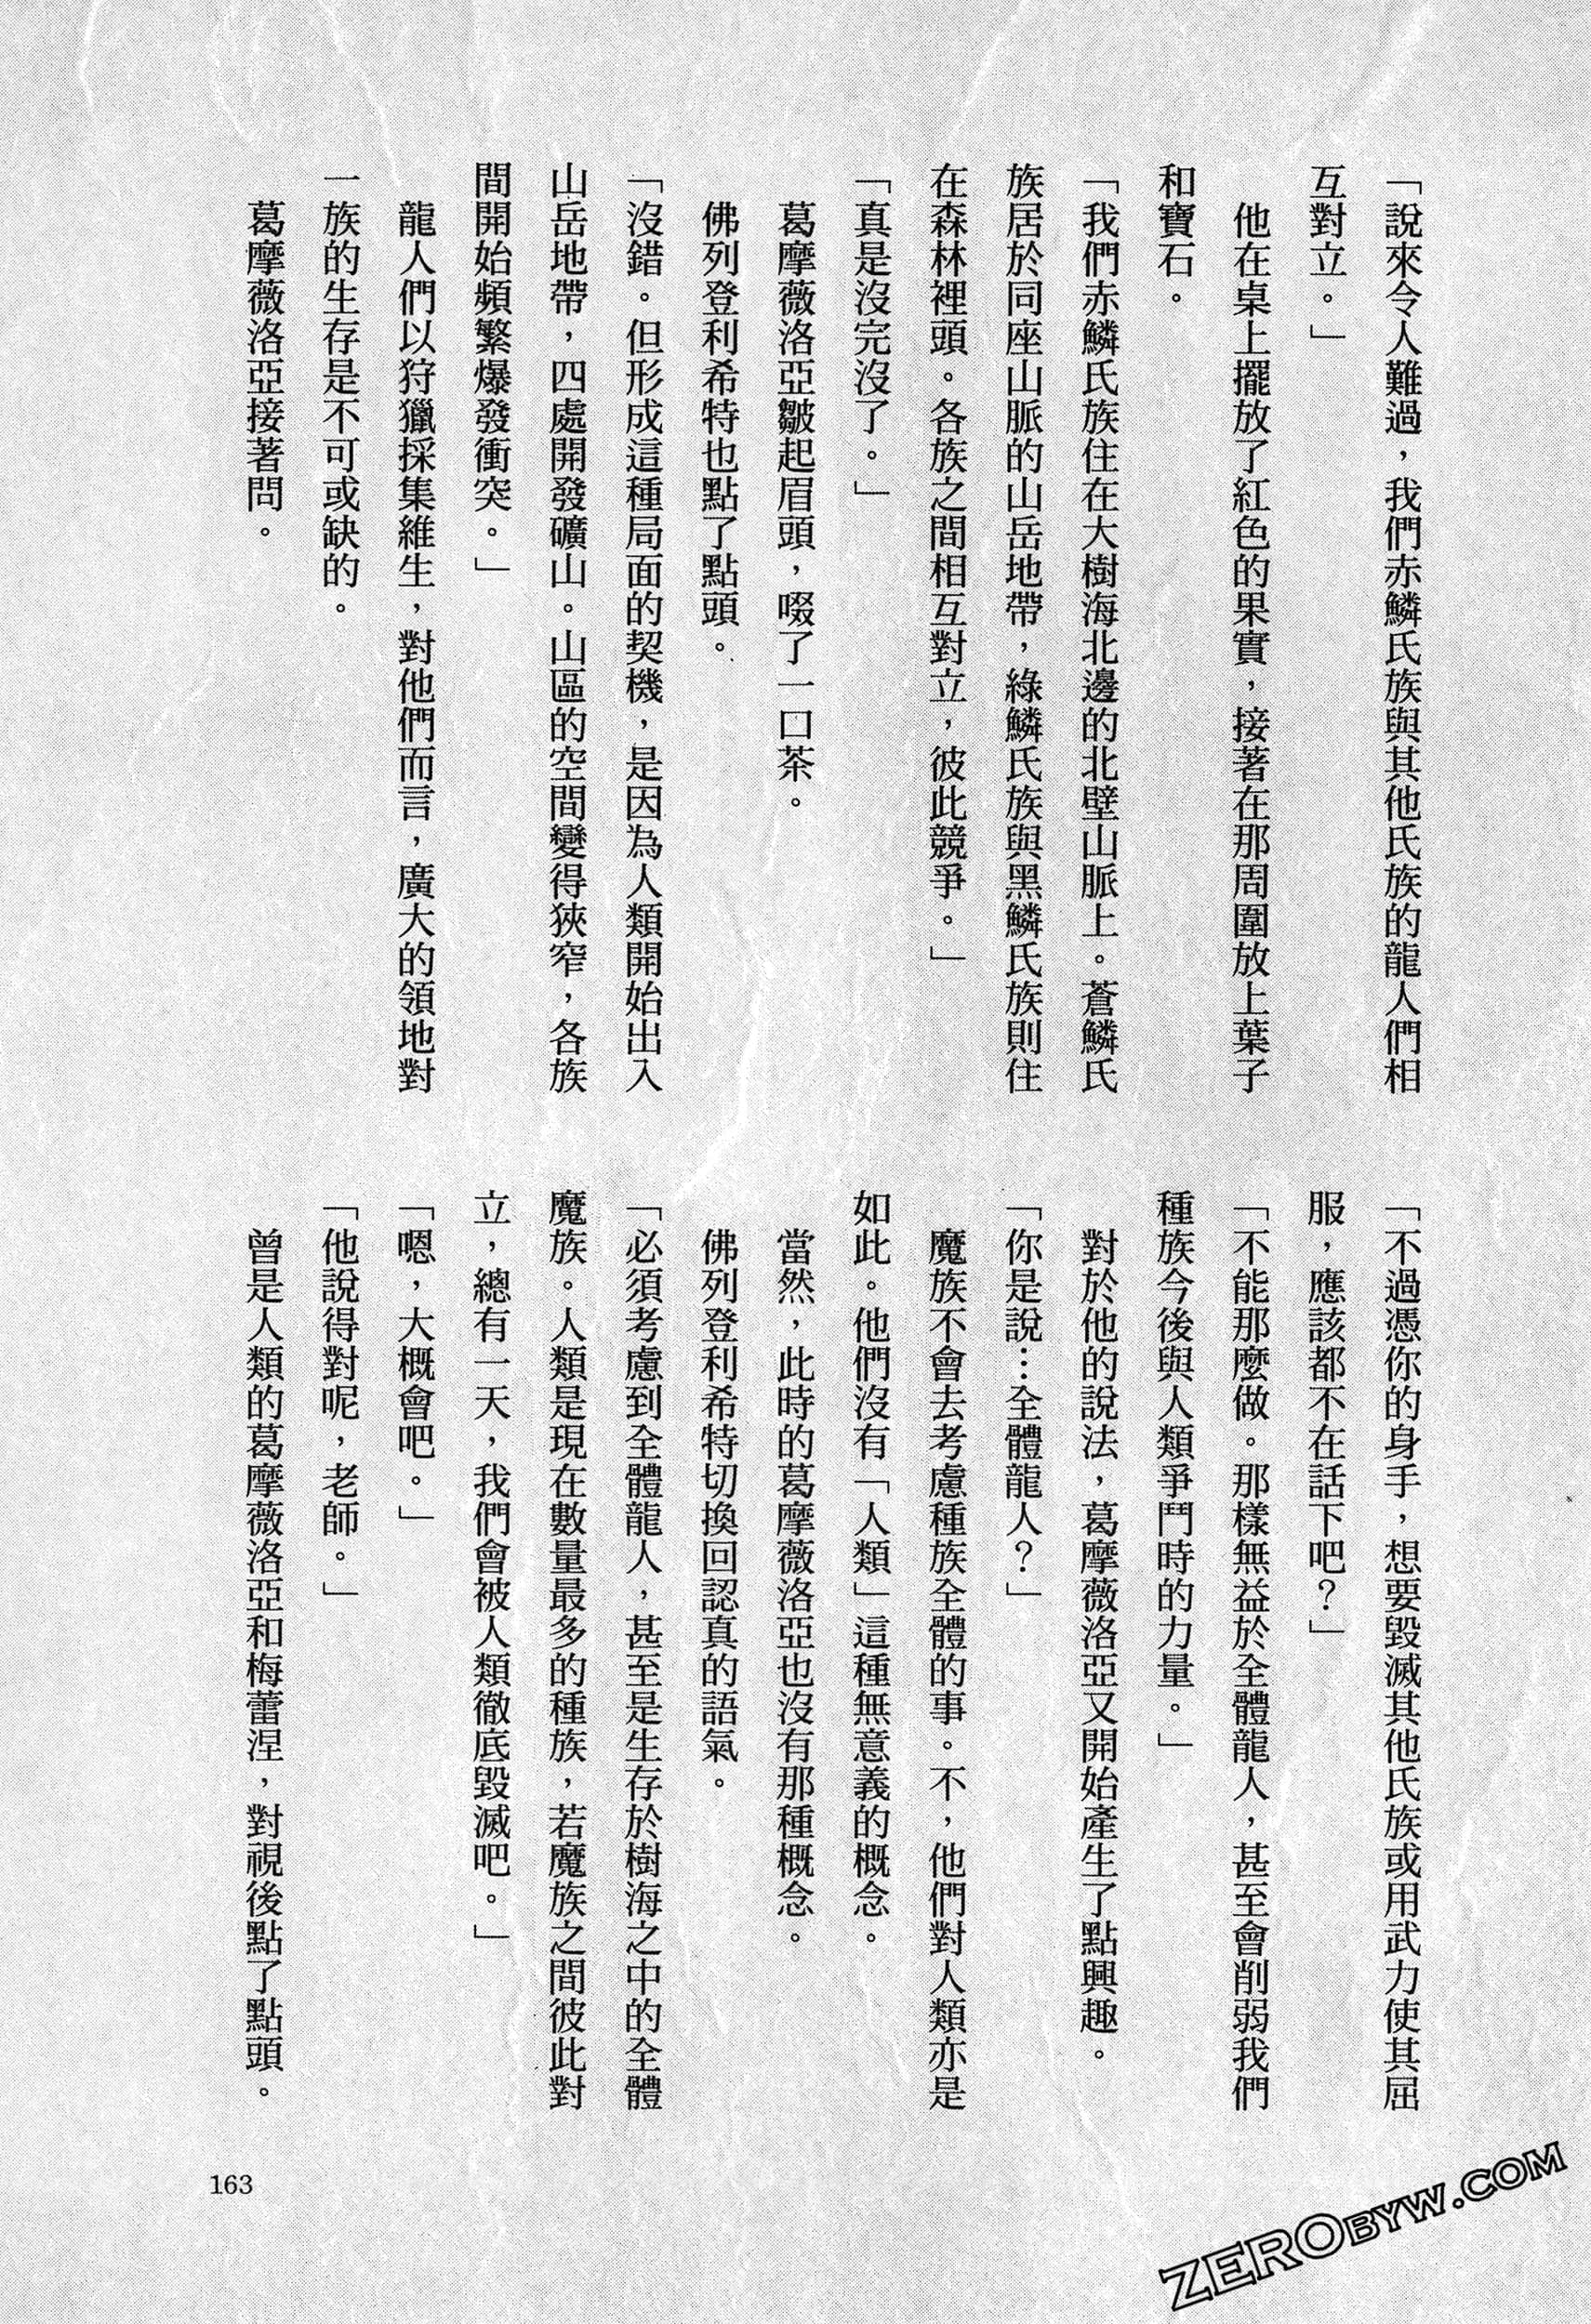 「說來令人難過，我們赤鱗氏族與其他氏族的龍人們相
互對立。」
他在桌上擺放了紅色的果實，接著在那周圍放上葉子
和寶石。
「我們赤鱗氏族住在大樹海北邊的北壁山脈上。蒼鱗氏
族居於同座山脈的山岳地帶，綠鱗氏族與黑鱗氏族則住
在森林裡頭。各族之間相互對立，彼此競爭。」
「真是沒完沒了。」
葛摩薇洛亞皺起眉頭，啜了一口茶。
佛列登利希特也點了點頭。
「沒錯。但形成這種局面的契機，是因為人類開始出入
山岳地帶，四處開發礦山。山區的空間變得狹窄，各族
間開始頻繁爆發衝突。」
龍人們以狩獵採集維生，對他們而言，廣大的領地對
一族的生存是不可或缺的。
葛摩薇洛亞接著問。
「不過憑你的身手，想要毀滅其他氏族或用武力使其屈
服，應該都不在話下吧？」
「不能那麼做。那樣無益於全體龍人，甚至會削弱我們
種族今後與人類爭鬥時的力量。」
對於他的說法，葛摩薇洛亞又開始產生了點興趣。
「你是說…全體龍人？」
魔族不會去考慮種族全體的事。不，他們對人類亦是
如此。他們沒有「人類」這種無意義的概念。
當然，此時的葛摩薇洛亞也沒有那種概念。
佛列登利希特切換回認真的語氣。
「必須考慮到全體龍人，甚至是生存於樹海之中的全體
魔族。人類是現在數量最多的種族，若魔族之間彼此對
立，總有一天，我們會被人類徹底毀滅吧。」
「嗯，大概會吧。」
「他說得對呢，老師。」
曾是人類的葛摩薇洛亞和梅蕾涅，對視後點了點頭。
163
ZEROBYW.COM